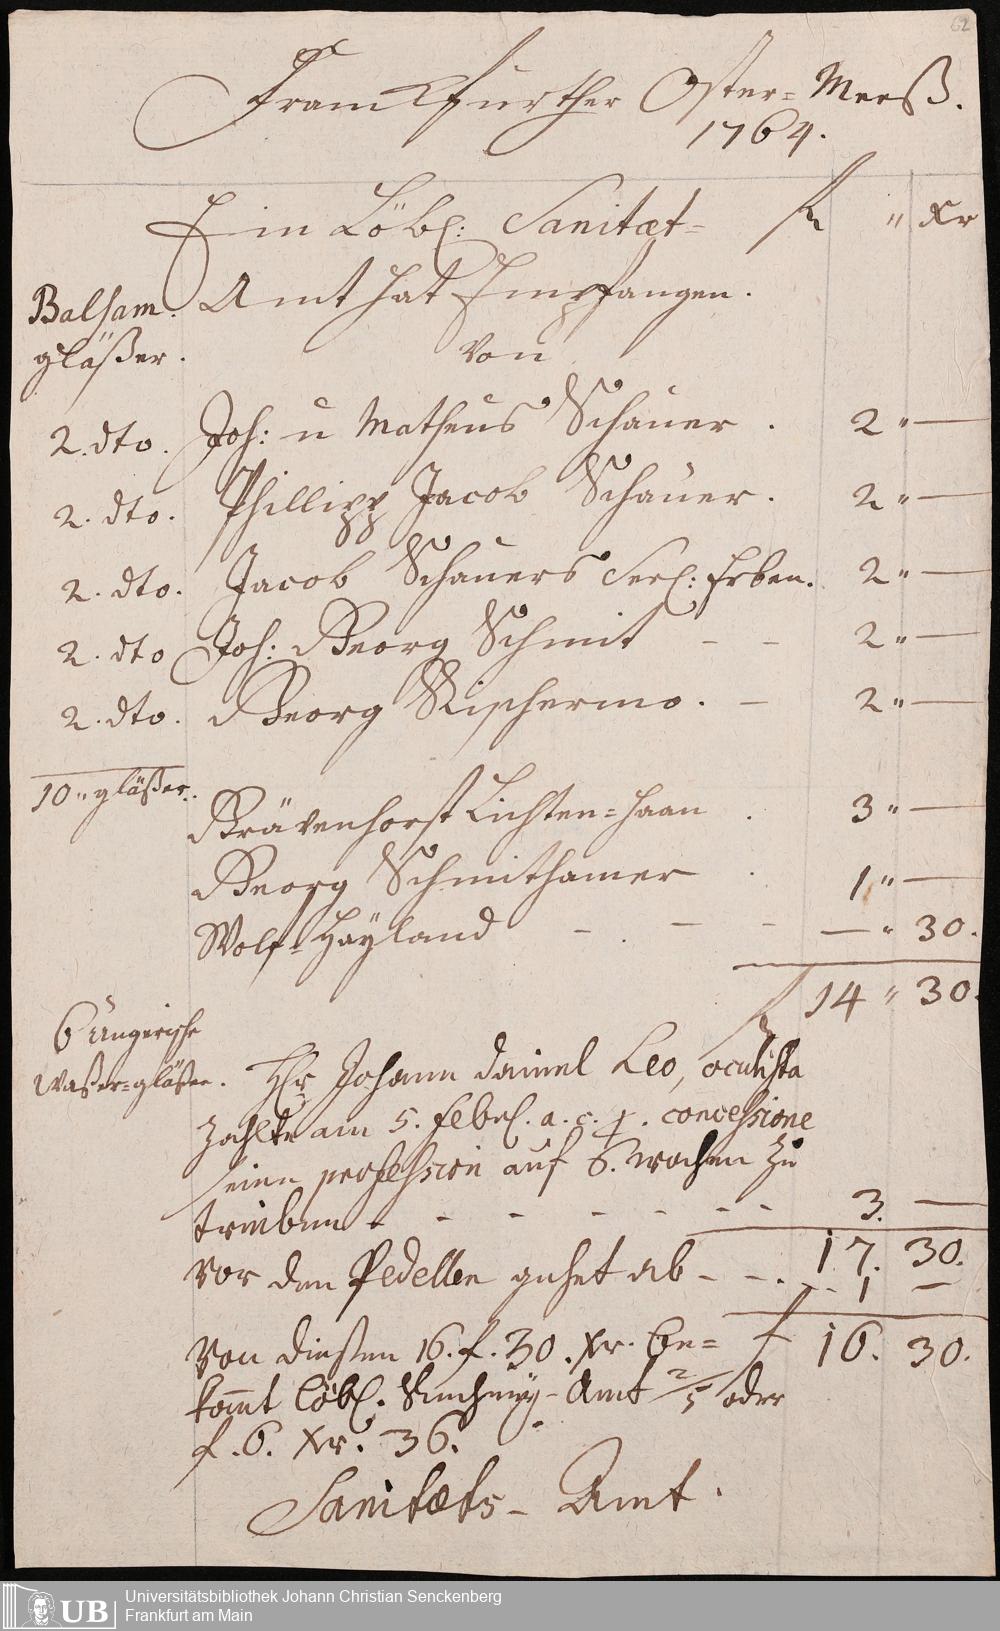 62
Franckfurther Oster= Meeß.
1764.
Ein Löbl: Sanitæt= fl " Xr
Balsam. Amt hat Empfangen.
gläßer. Von
2. dto. Joh: u Matheus Schauer . 2 " —
2. dto. Phillipp Jacob Schauer. 2 " —
2. dto. Jacob Schauers Seel: Erben. 2 " —
2. dto Joh: Georg Schmit - - 2 " —
2. dto. Georg . - 2 " —
10 " gläßer.
Lichten=haan . 3 " —
Georg Schmithamer . 1 " —
Wolf= Hayland - - - — " 30.
fl 14 " 30.
6 Ungerische
Waßer=gläßer. Hr Johann Daniel Leo, oculista
zahlte am 5. Febr. a. c. p. concessione
seine profession auf 6. wochen zu
treiben - - - - - - 3. —
17. 30.
vor den Pedellen gehet ab - - . - . . 1 —
von diesen 16. f. 30. Xr. be= f 16. 30.
komt löbl. Amt 2/5 oder
f. 6. Xr. 36.
Sanitæts - Amt.
UB
Universitätsbibliothek Johann Christian Senckenberg
Frankfurt am Main